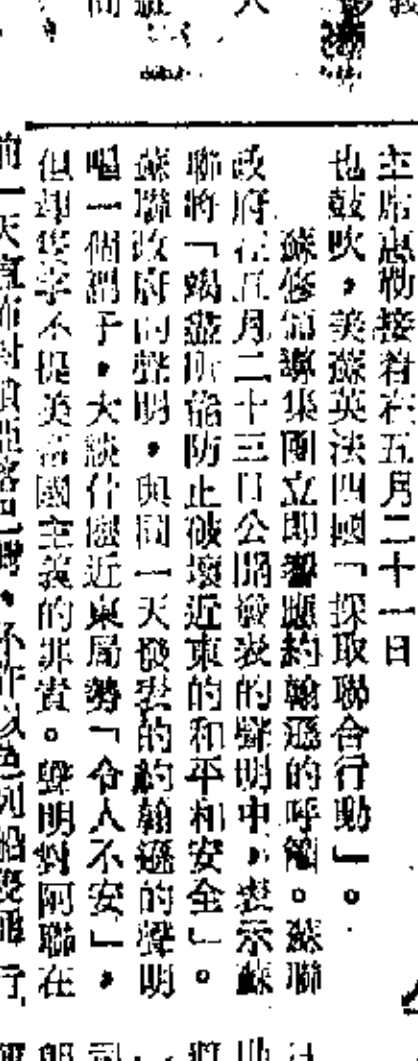 主席惠勒接着在五月二十一日
也鼓吹，美蘇英法四國「採取聯合行動」。
蘇修領導集團立即響應約翰遜的呼籲。蘇聯
政府在五月二十三日公開發表的聲明中，表示蘇
聯將「竭盡所能防止破壞近東的和平和安全」。
蘇聯政府的聲明，與同一天發表的約翰遜的聲明
唱一個調子，大談什麽近東局勢「令人不安」，
但却隻字不提美帝國主義的罪責。聲明對阿聯在
前一天宣布封鎖亞喀巴灣，不許以色列船隻